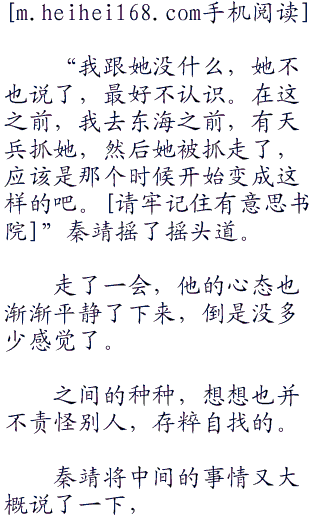 [m.heihei168.com手机阅读]
“我跟她没什么，她不
也说了，最好不认识。在这
之前，我去东海之前，有天
兵抓她，然后她被抓走了，
应该是那个时候开始变成这
样的吧。[请牢记住有意思书
院]”秦靖摇了摇头道。
走了一会，他的心态也
渐渐平静了下来，倒是没多
少感觉了。
之间的种种，想想也并
不责怪别人，存粹自找的。
秦靖将中间的事情又大
概说了一下，